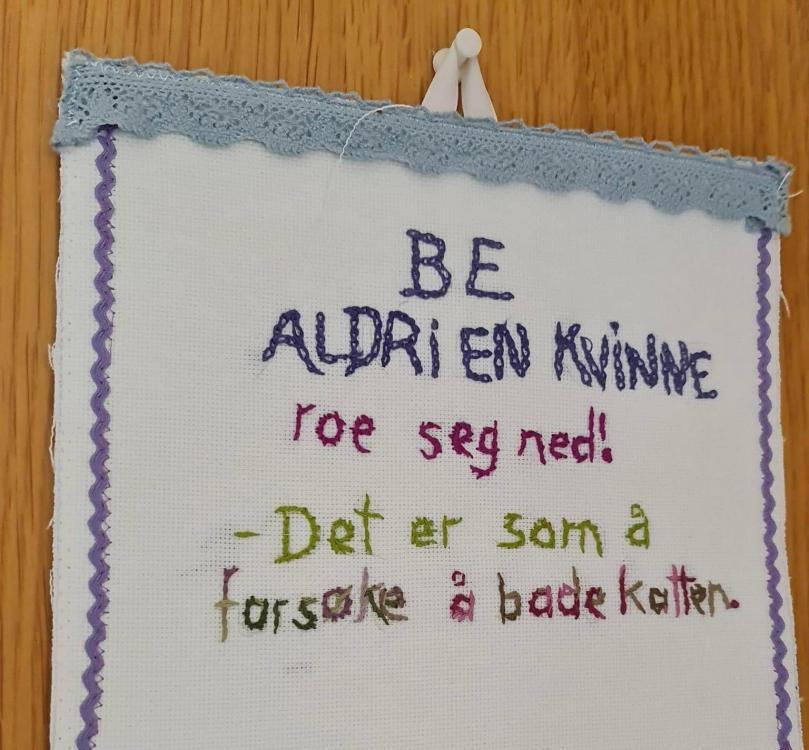 BE
ALDRi EN KViNNE
roe seg ned!
- Det er som å
forsøke å bade katten.